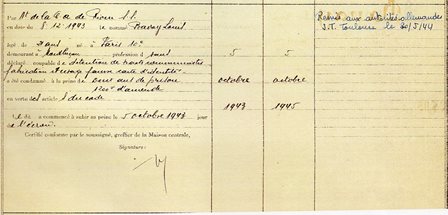 Par Mt de la C. a de Riom S.S.
en date du 8.12.1943 le nommé Savary Louis
âgé de 2 ans né à Paris 10e
demeurant à profession
déclaré coupable de détention de tracts communistes
fabrication et usage fausse carte d'identité
a été condamné à la peine de ans de prison
1200f d'amende
en vertu des articles du code
Le dit a commencé à subir sa peine le 5 octobre 1943 jour
de l'écrou
Certifié conforme par le soussigné, greffier de la Maison centrale,
Signature :
5
octobre
1943
5
octobre
1945
Remis aux autorités allemandes
S.T. Toulouse le 30/5/44